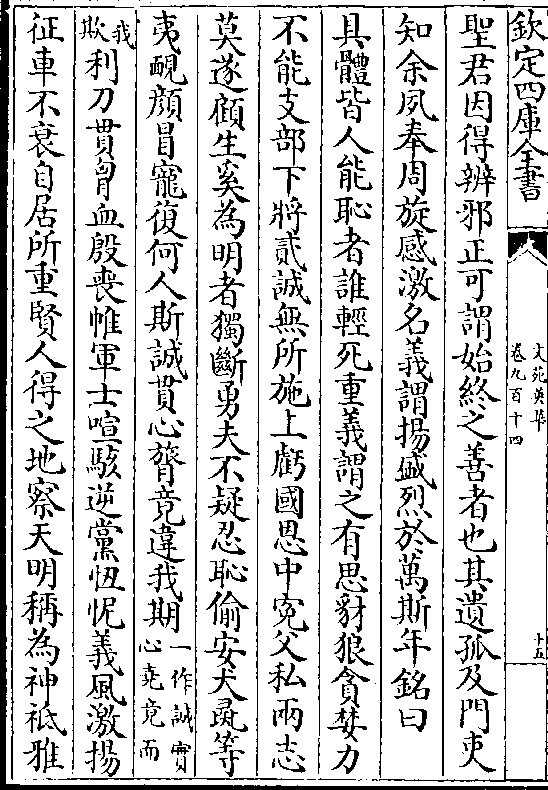 欽定四庫全書
文苑英華
卷九百十四
十五
聖君因得辨邪正可謂始終之善者也其遺孤及門吏
知余夙奉周旋感激名義謂揚盛烈於萬斯年銘曰
具體皆人能恥者誰輕死重義謂之有思豺狼貪婪力
不能支部下將貳誠無所施上虧國恩中寃父私兩志
莫遂顧生奚為明者獨斷勇夫不疑忍恥偷安犬彘等
夷靦顔冒寵復何人斯誠貫心膂竟違我期一作誠實心堯竟而
我欺利刀貫胷血殷喪帷軍士喧駭逆黨忸怩義風激揚
征車不衰自居所重賢人得之地察天明稱為神祗雅